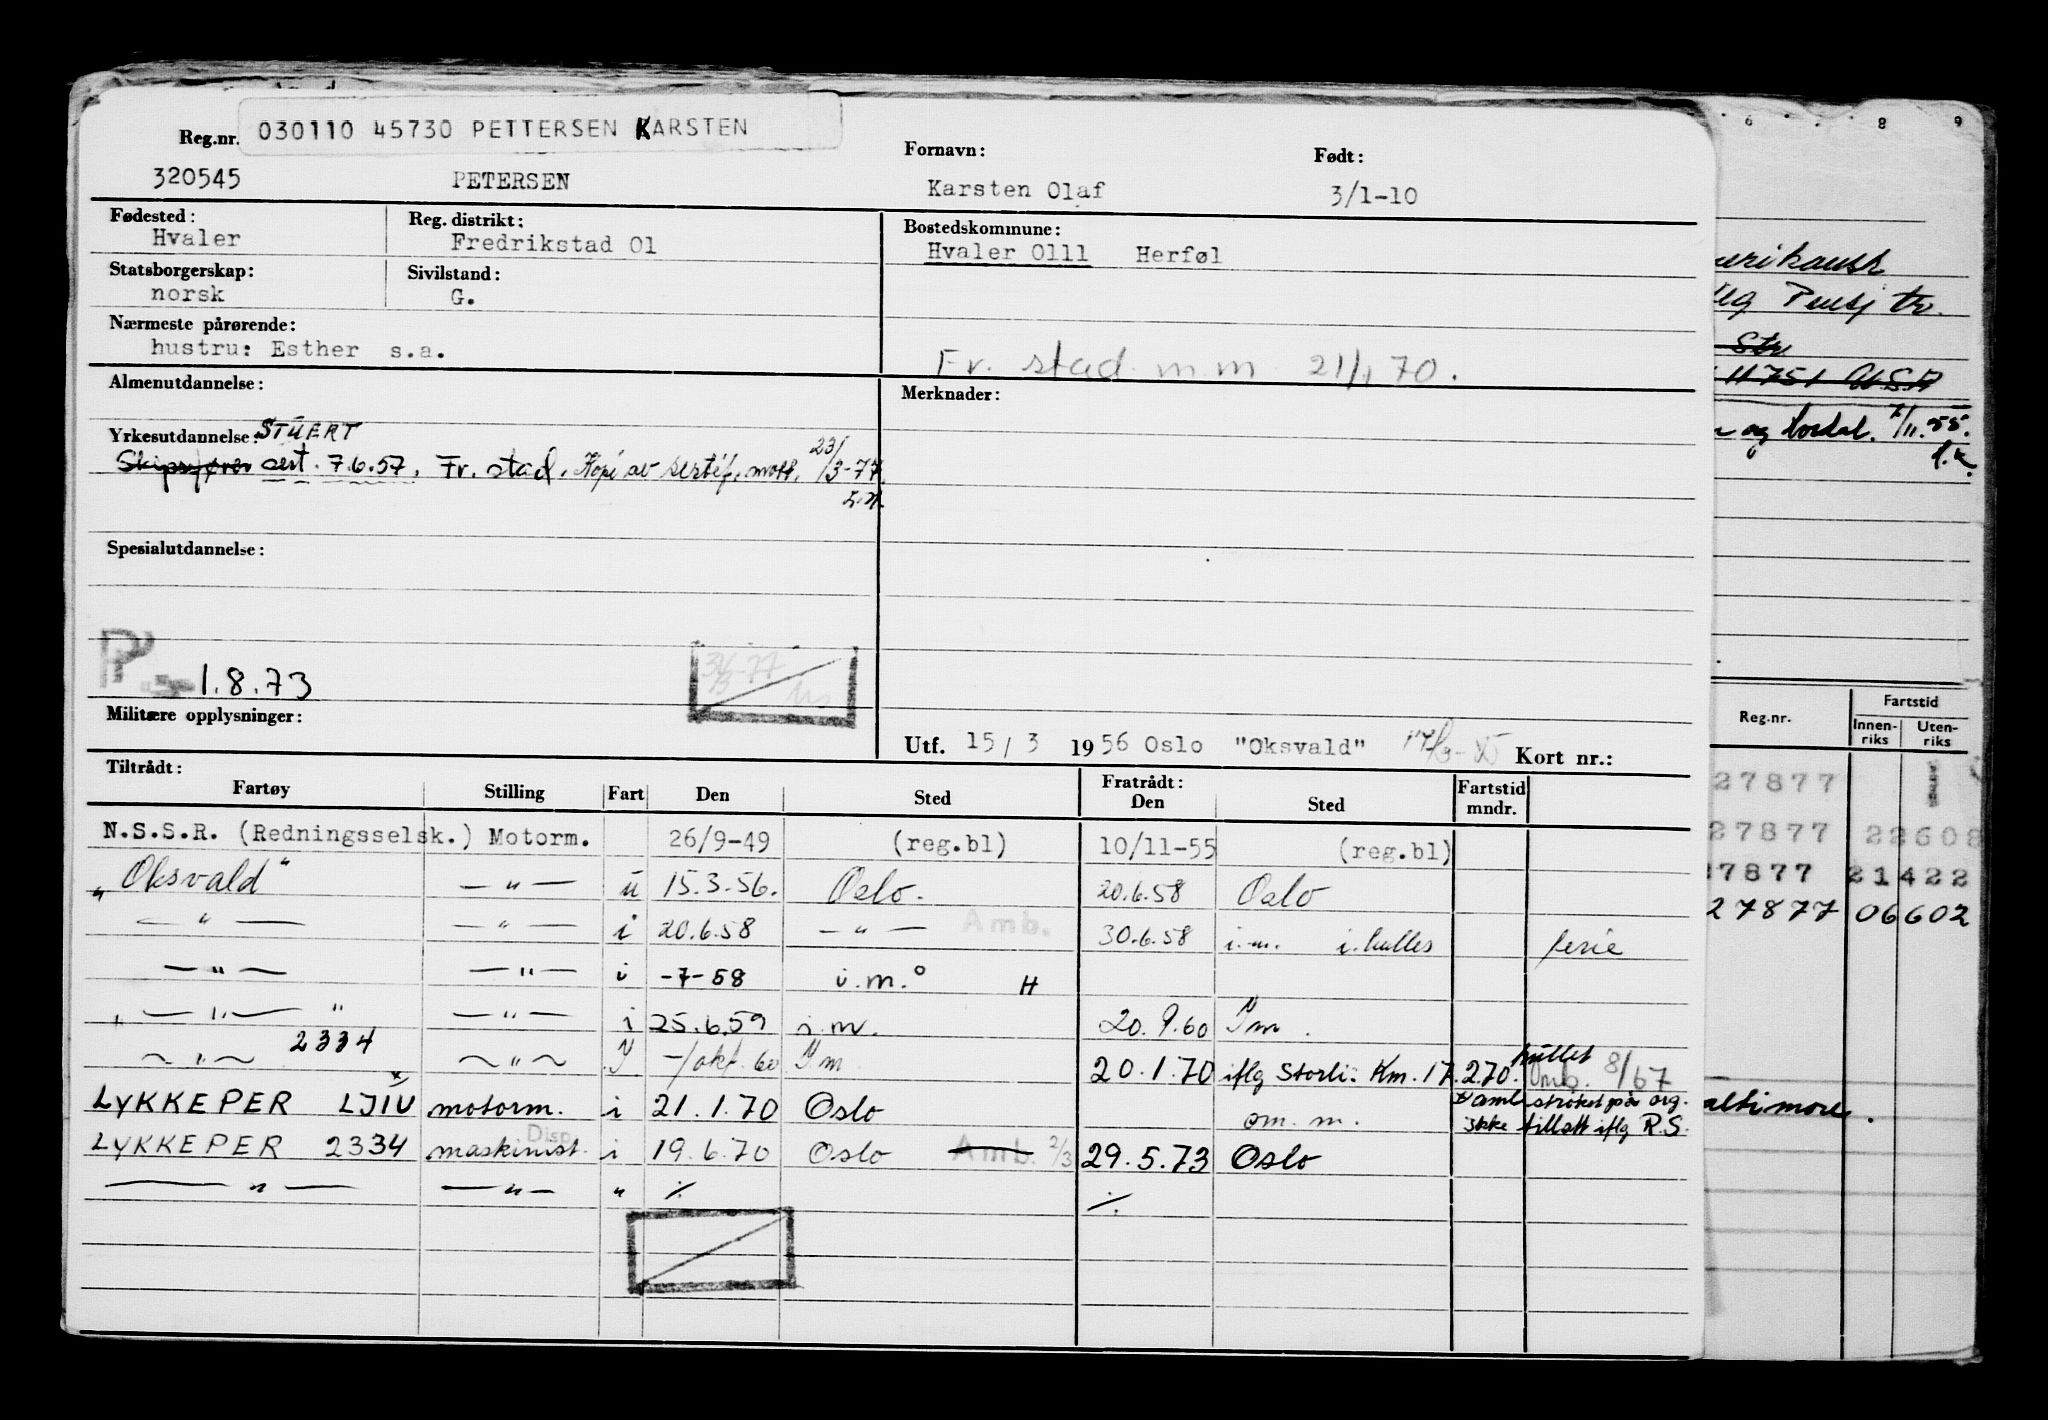 030110 45730 PETTERSEN KARSTEN
Reg.nr. Fornavn: Født:
320545 PETERSEN Karsten Olaf 3/1-10
Fødested: Reg. distrikt: Bostedskommune:
Hvaler Fredrikstad 01 Hvaler 0111 Herføl
Statsborgerskap: Sivilstand:
norsk G.
Nærmeste pårørende:
hustru: Esther s.a.
Fr. stad m.m. 21/1 70.
Almenutdannelse: Merknader:
Yrkesutdannelse: STUERT
Skipsfører sert. 7.6.57, Fr. stad. Kopi av sertif. mott. 23/3-77.
Spesialutdannelse:
P 1.8.73
Militære opplysninger:
Utf. 15/3 1956 Oslo "Oksvald" Kort nr.:
Tiltrådt: Fratrådt:
Fartøy Stilling Fart Den Sted Den Sted Fartstid mndr.
N.S.S.R. (Redningsselsk.) Motorm. 26/9-49 (reg.bl) 10/11-55 (reg.bl)
"Oksvald" — " — u 15.3.56. Oslo. 20.6.58 Oslo
— " — — " — i 20.6.58 — " — Amb. 30.6.58 i.m. ferie
— " — — " — i -7-58 i.m. H
" — " — " — " — i 25.6.59 i.m. 20.9.60 Im.
2334
— " — — " — I -/okt. 60 Im 20.1.70 iflg Storli. Km. 17.270. Amb. 8/67
LYKKEPER LJIU motorm. i 21.1.70 Oslo om. m. ikke tillatt iflg R.S.
LYKKEPER 2334 maskinist. Disp. i 19.6.70 Oslo Amb. 2/3 29.5.73 Oslo
— " — — " — " ⁒ ⁒
6 8 9
Pensj tr.
Str
11751 U.S.A
og bordal. 7/11.55.
Reg.nr. Fartstid
Innenriks Utenriks
27877
27877 22608
7877 21422
27877 06602
altimore.